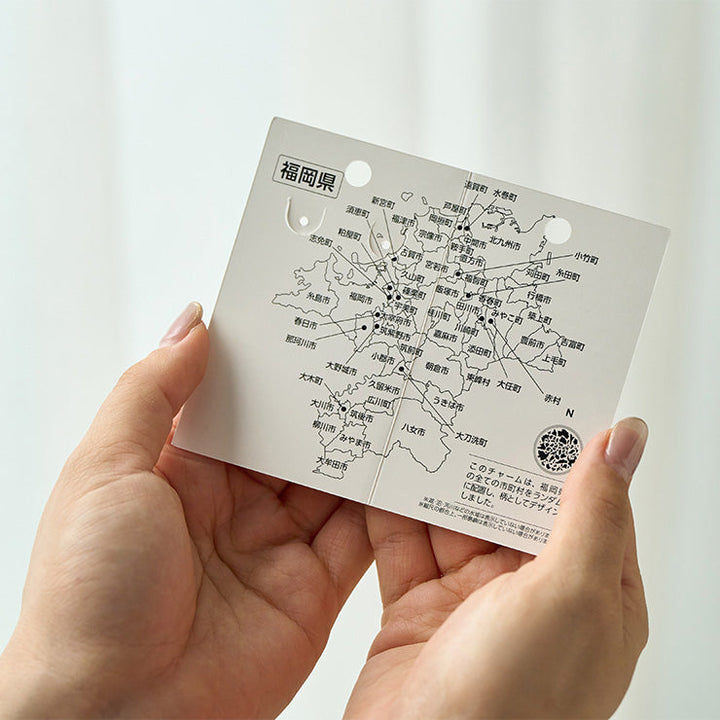 福岡県
遠賀町
水巻町
新宮町
芦屋町
須恵町
福津市
岡垣町
北九州市
粕屋町
宗像市
中間市
志免町
鞍手町
小竹町
古賀市
直方市
宮若市
苅田町
糸田町
久山町
福智町
篠栗町
飯塚市
香春町
行橋市
糸島市
福岡市
宇美町
桂川町
みやこ町
築上町
太宰府市
川崎町
春日市
筑紫野市
嘉麻市
豊前市
吉富町
那珂川市
筑前町
添田町
上毛町
小郡市
大野城市
朝倉市
東峰村
大任町
大木町
久留米市
赤村
広川町
うきは市
大川市
筑後市
N
柳川市
みやま市
八女市
大刀洗町
大牟田市
このチャームは、福岡県
の全ての市町村をランダム
に配置し、柄としてデザイン
しました。
※湖・沼・河川などの水域は表示していない場合があります
※縮尺の都合上、一部島嶼は表示していない場合がありま